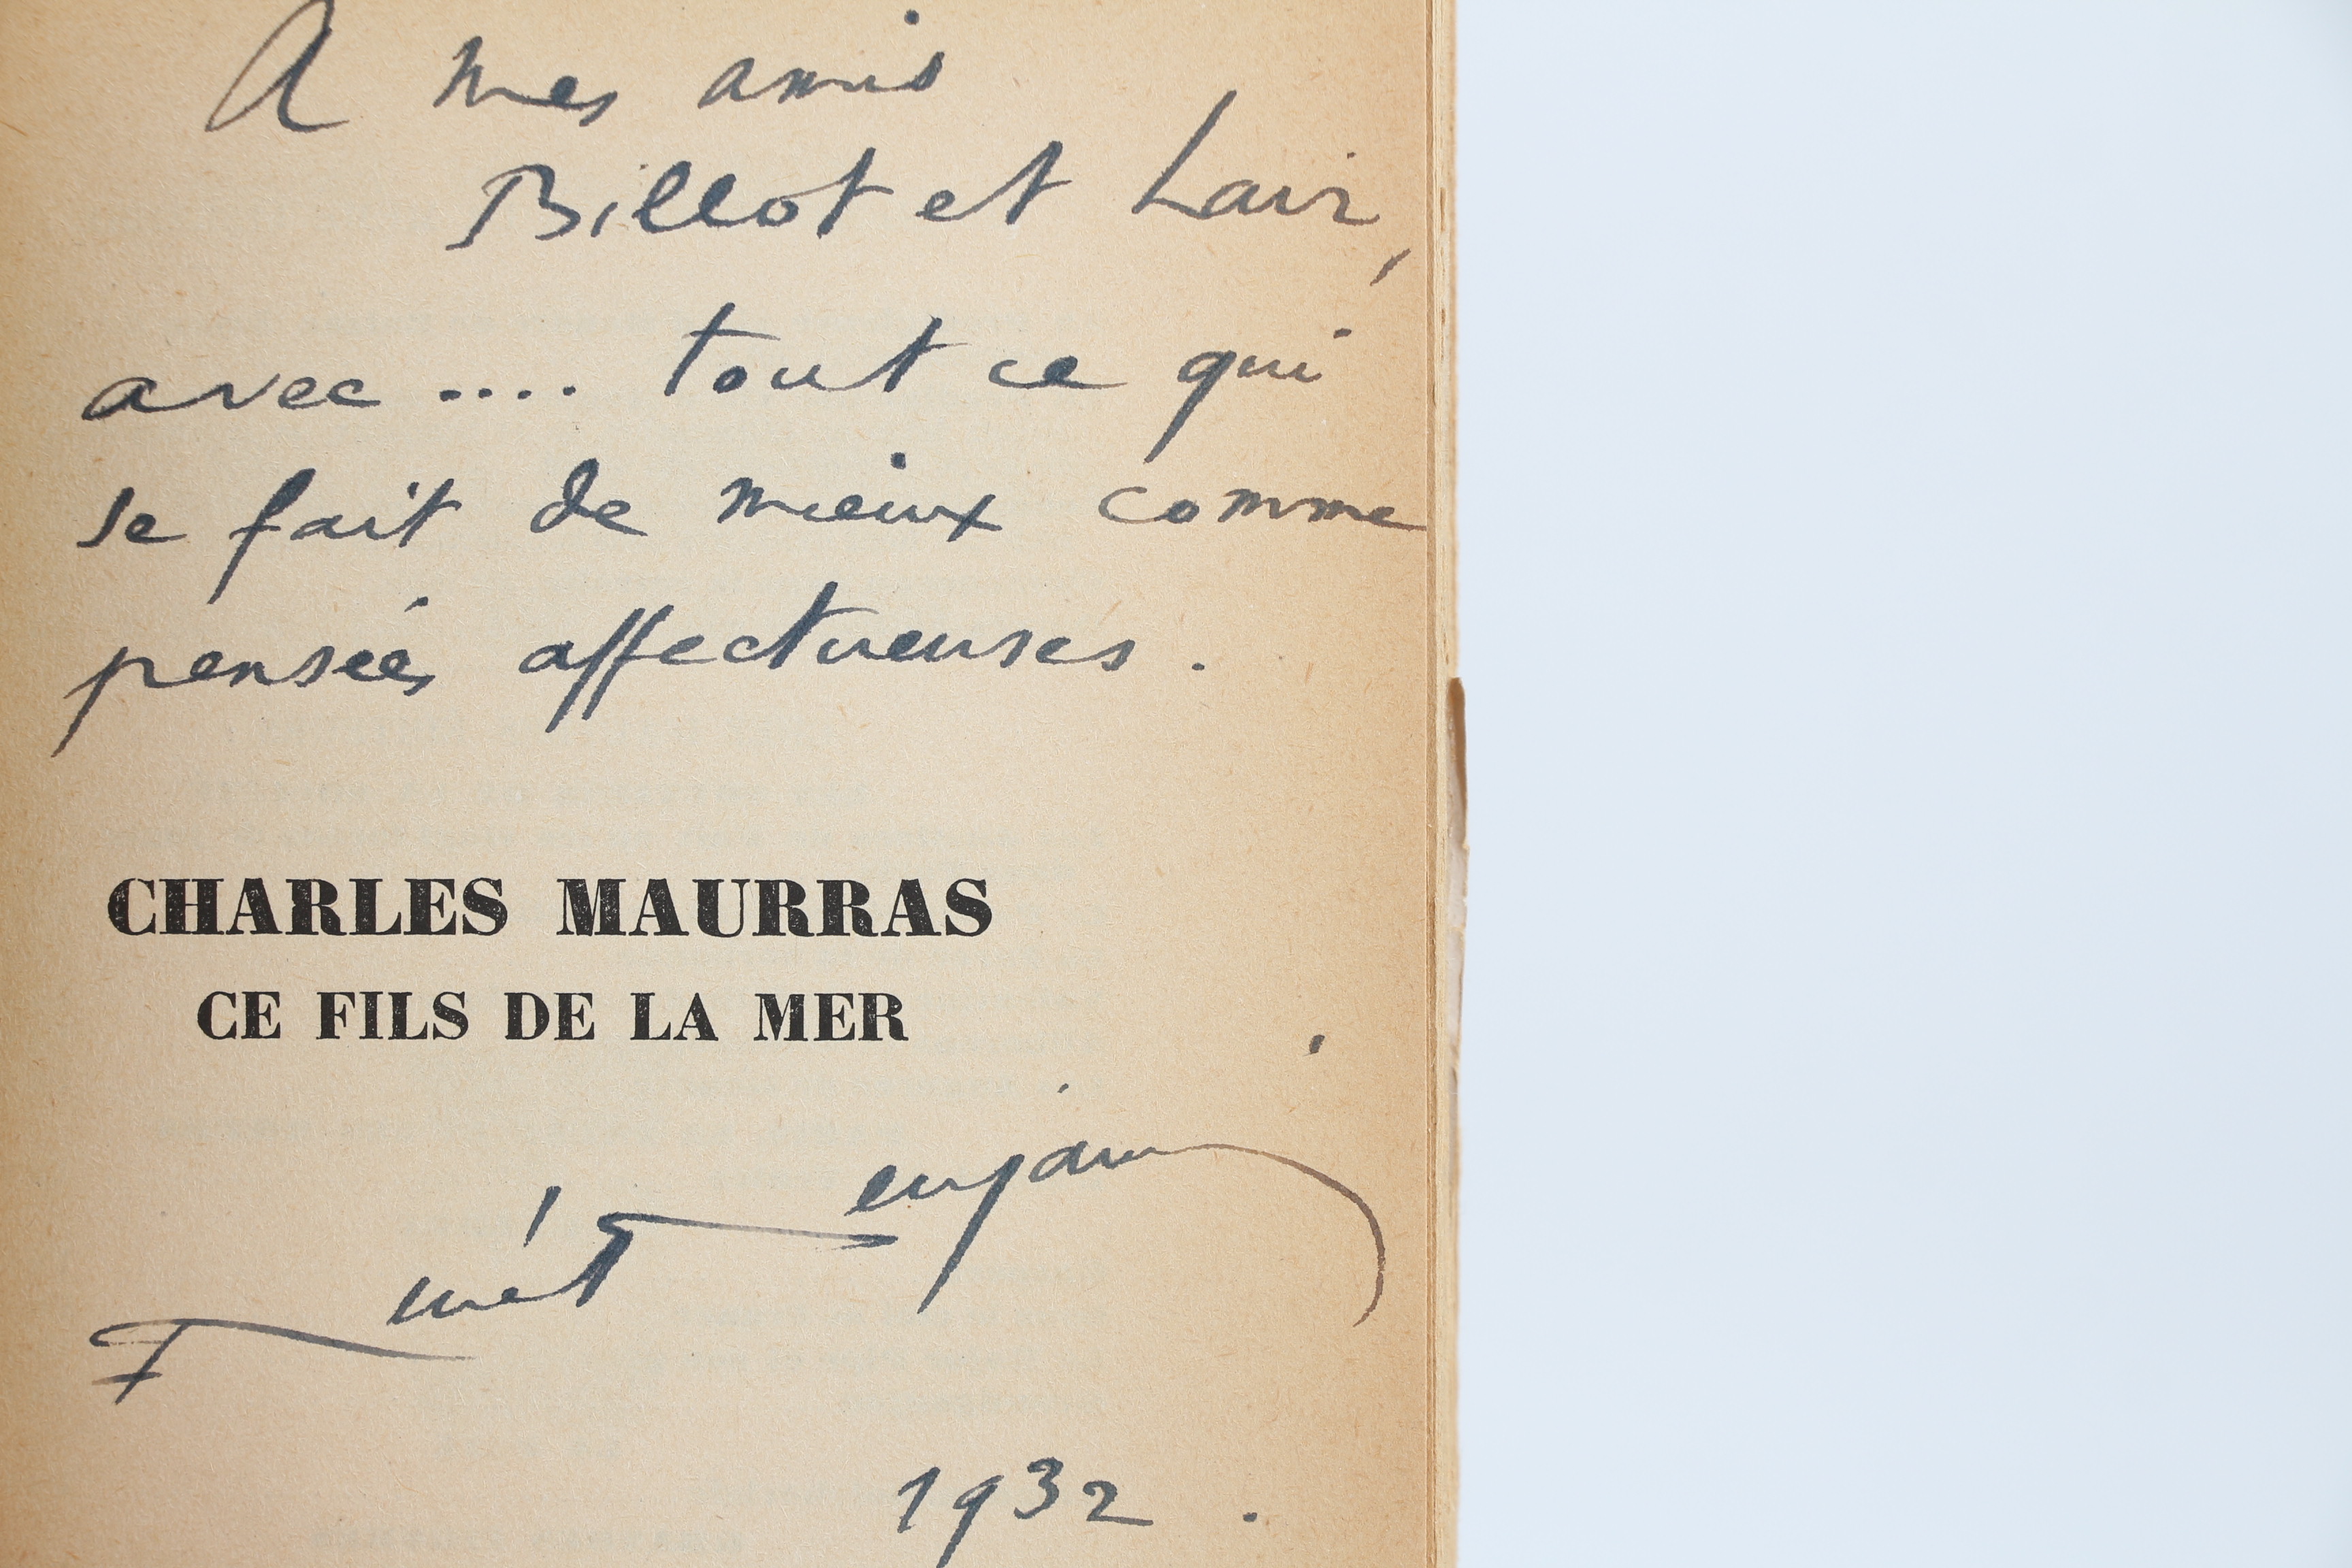 A mes amis
Billot et Lair,
avec .... tout ce qui
se fait de mieux comme
pensées affectueuses.
CHARLES MAURRAS
CE FILS DE LA MER
René Benjamin
1932.